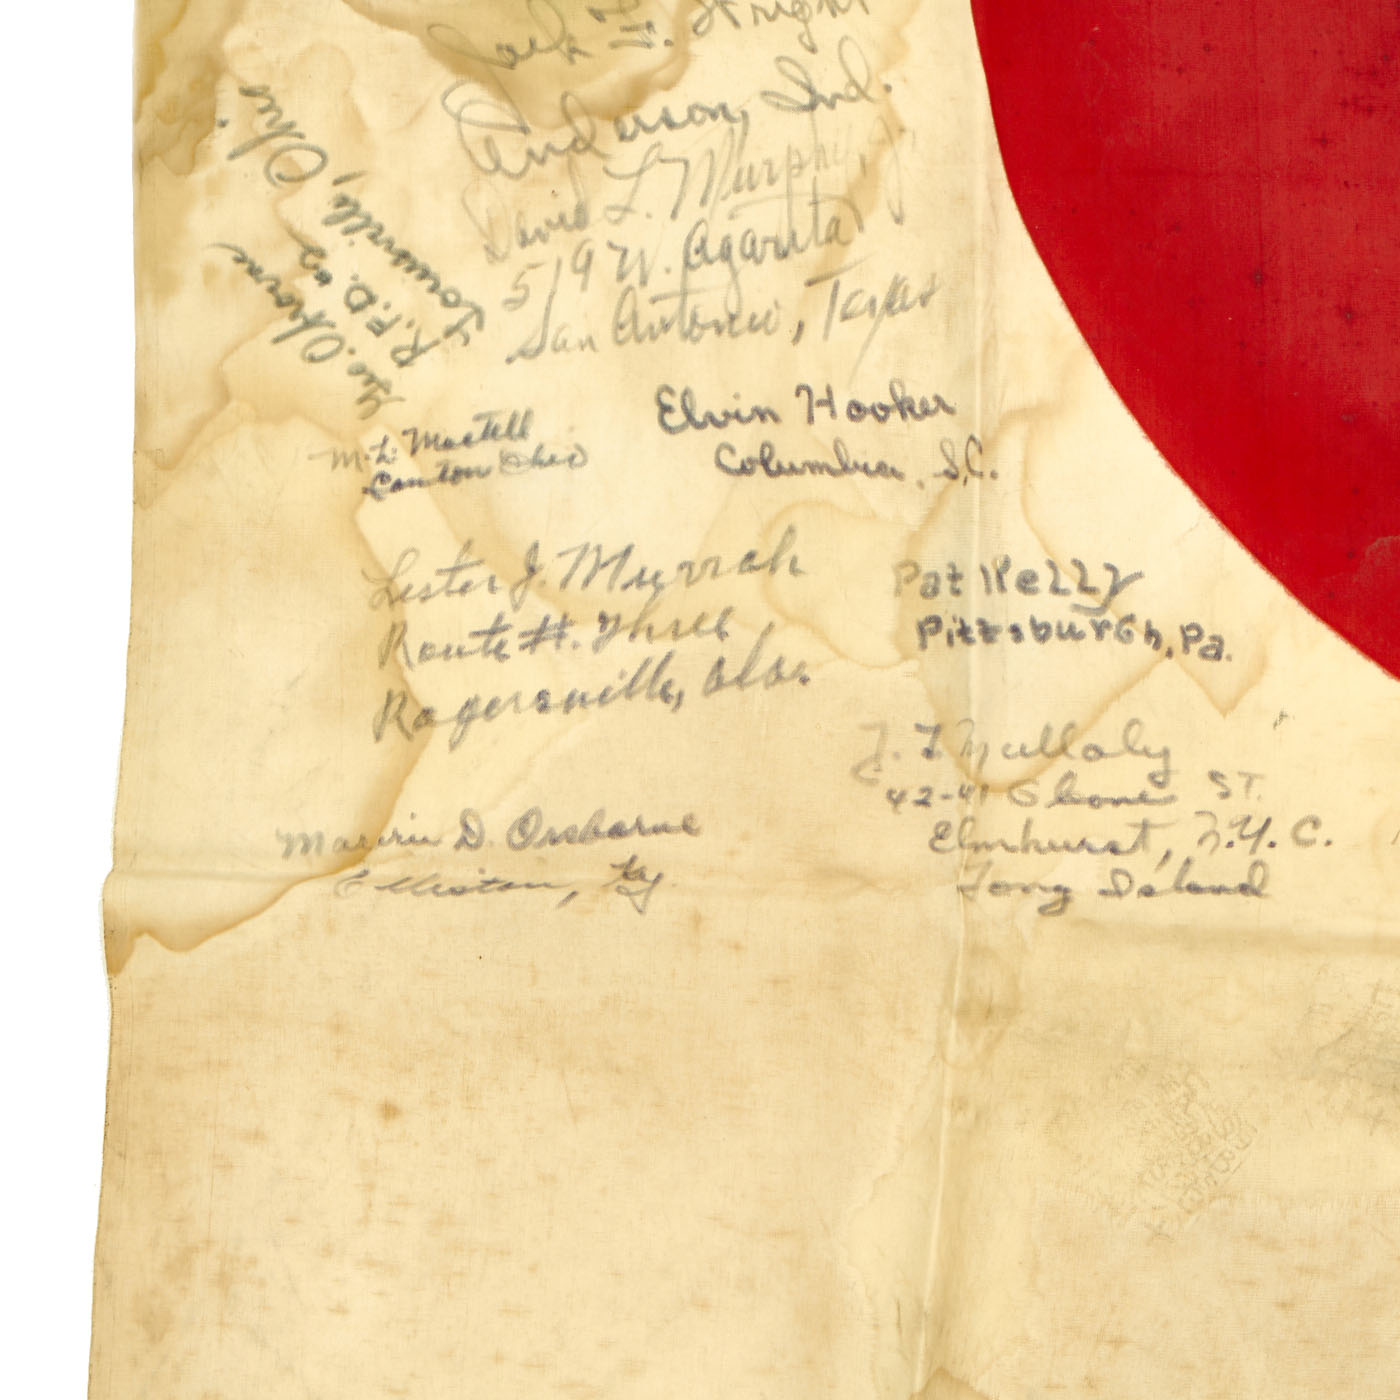 Jack F. Wright
Anderson, Ind.
David L. Murphy, Jr.
519 W. Agarita
San Antonio, Texas
Geo.
R.F.D. #3
Louisville, Ohio
Elvin Hooker
Columbia, S.C.
M. L. Martell
Canton Ohio
Lester J. Murrah
Route #. Three
Rogersville, Ala.
Pat Kelly
Pittsburgh, Pa.
J. F. Mullaly
42-41 ST.
Elmhurst, N.Y.C.
Long Island
D. Osborne
Elliston, Ky.